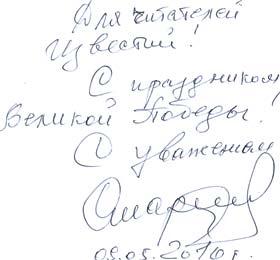 Для читателей
Известий!
С праздником
Великой Победы!
С уважением
09.05.2010г.